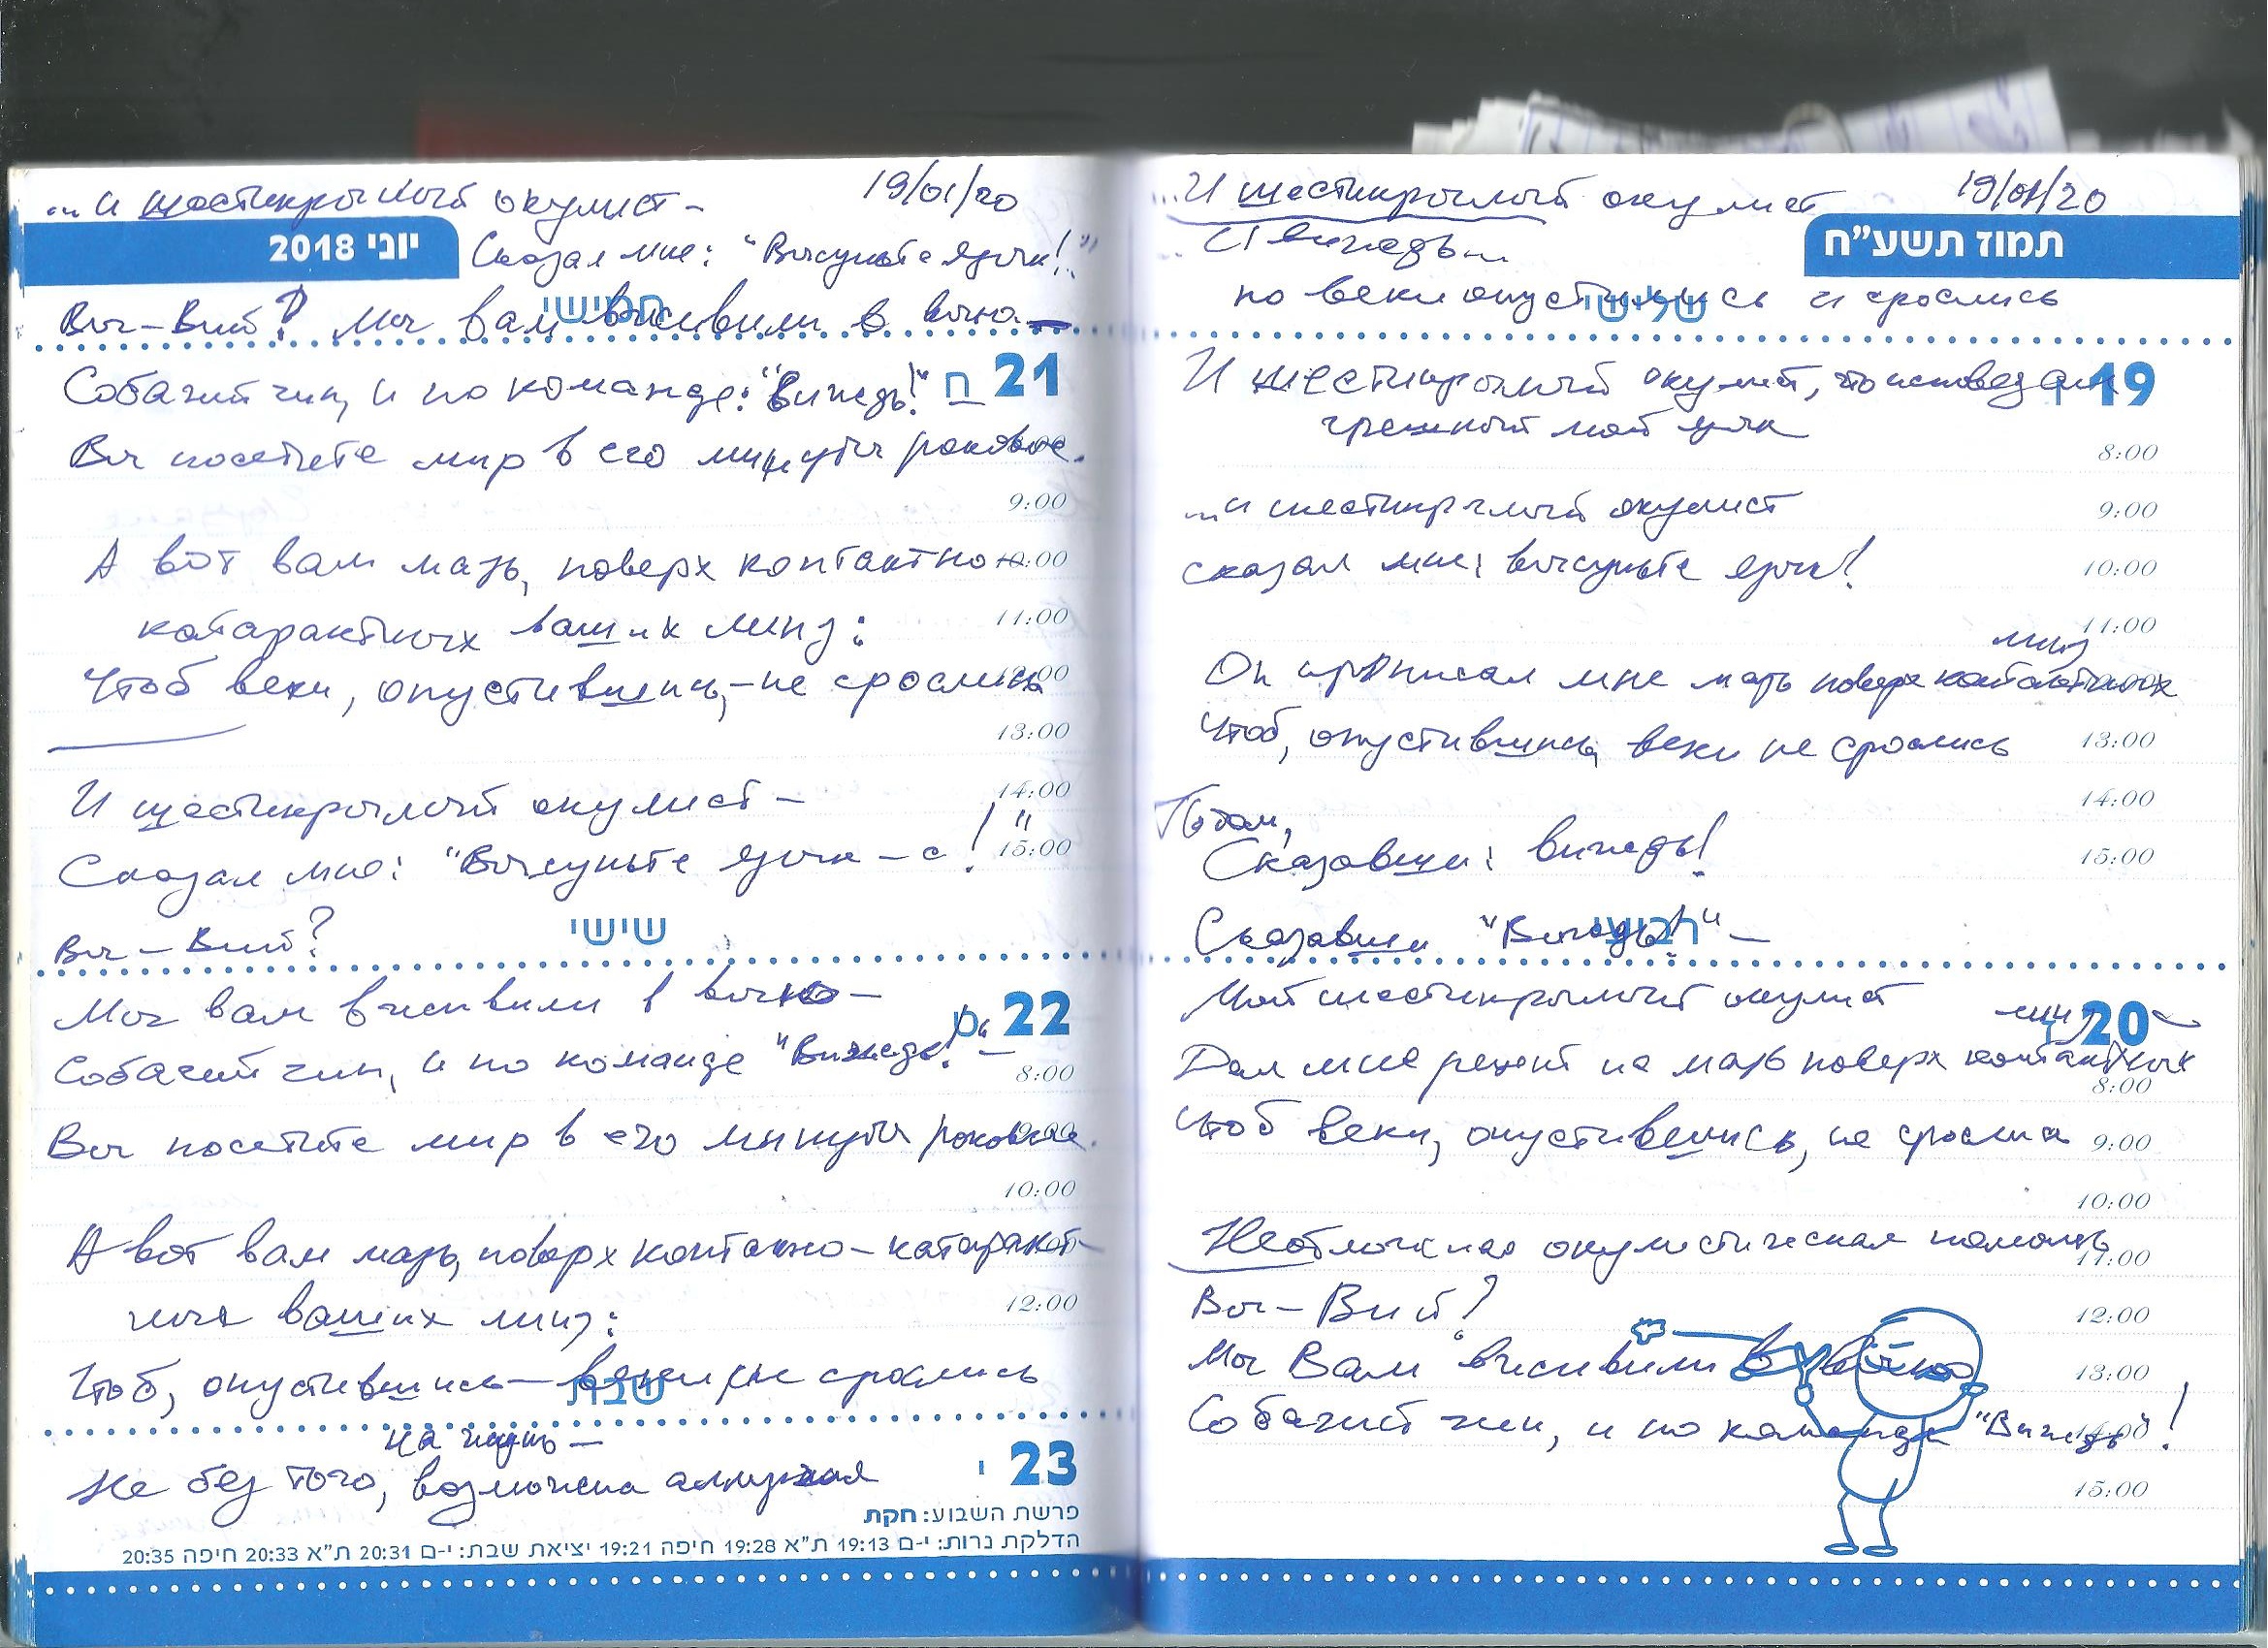 ...и шестикрылый окулист –
19/01/20
יוני 2018
Сказал мне: "Высуньте язык!.."
חמישי
Вы – Вий? Мы вам вживили в
Собачий чип, и по команде: "Виждь!" –
ח 21
Вы посетите мир в его минуты роковые.
9:00
А вот вам мазь, поверх контактно
10:00
катарактных ваших линз:
11:00
Чтоб веки, опустившись, – не срослись
12:00
13:00
И шестикрылый окулист –
14:00
Сказал мне: "Высуньте язык – с!"
15:00
Вы – Вий?
שישי
Мы вам вживили в
22
Собачий чип, и по команде "Виждь!" –
8:00
Вы посетите мир в его минуты роковые.
10:00
А вот вам мазь, поверх контактно – катаракт-
ных ваших линз:
12:00
Чтоб, опустившись – веки не срослись
שבת
на жизнь –
Не без того, возможна
י 23
פרשת השבוע: חקת
הדלקת נרות: י-ם 19:13 ת"א 19:28 חיפה 19:21 יציאת שבת: י-ם 20:31 ת"א 20:33 חיפה 20:35
...И шестикрылый окулист
19/01/20
תמוז תשע"ח
И виждь...
но веки опустились и срослись
שלישי
И шестикрылый окулист, что исповедал
19
грешный мой язык
8:00
...и шестикрылый окулист
9:00
сказал мне: высуньте язык!
10:00
11:00
линз
Он прописал мне мазь поверх контактных
Чтоб, опустившись, веки не срослись
13:00
14:00
Потом,
Сказавши: виждь!
15:00
Сказавши "Виждь!" –
רביעי
Мой шестикрылый окулист
линз
20
Дал мне рецепт на мазь поверх контактных
8:00
Чтоб веки, опустившись, не срослись
9:00
10:00
Неотложная окулистическая помощь
11:00
Вы – Вий?
12:00
Мы Вам вживили в
13:00
Собачий чип, и по команде "Виждь"!
14:00
15:00